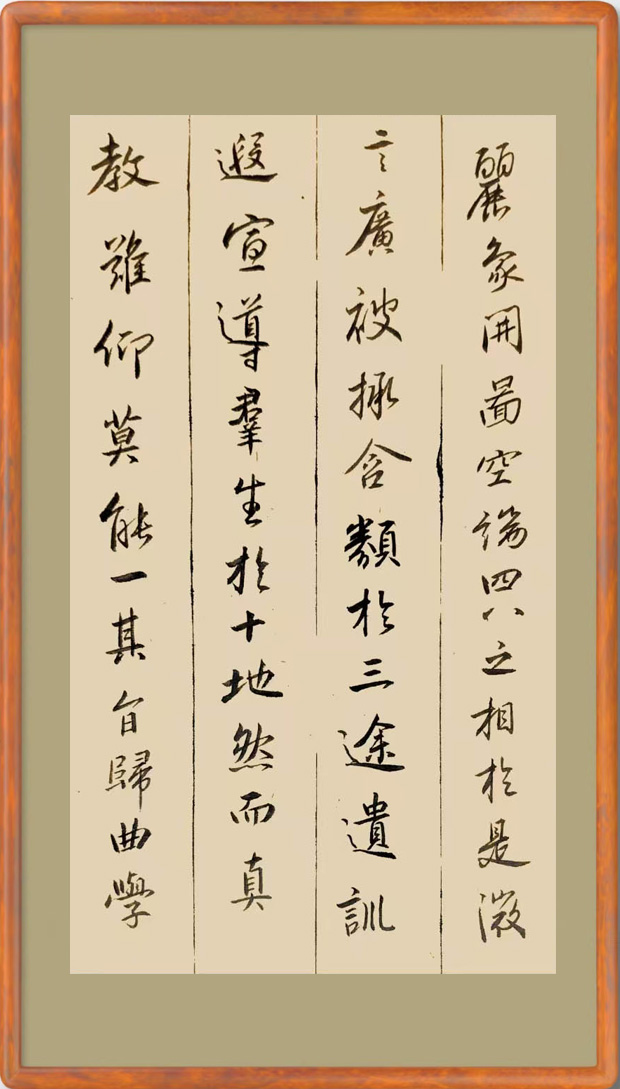 麗象開圖空端四八之相於是微
言廣被拯含類於三途遺訓
遐宣導羣生於十地然而真
教難仰莫能一其旨歸曲學